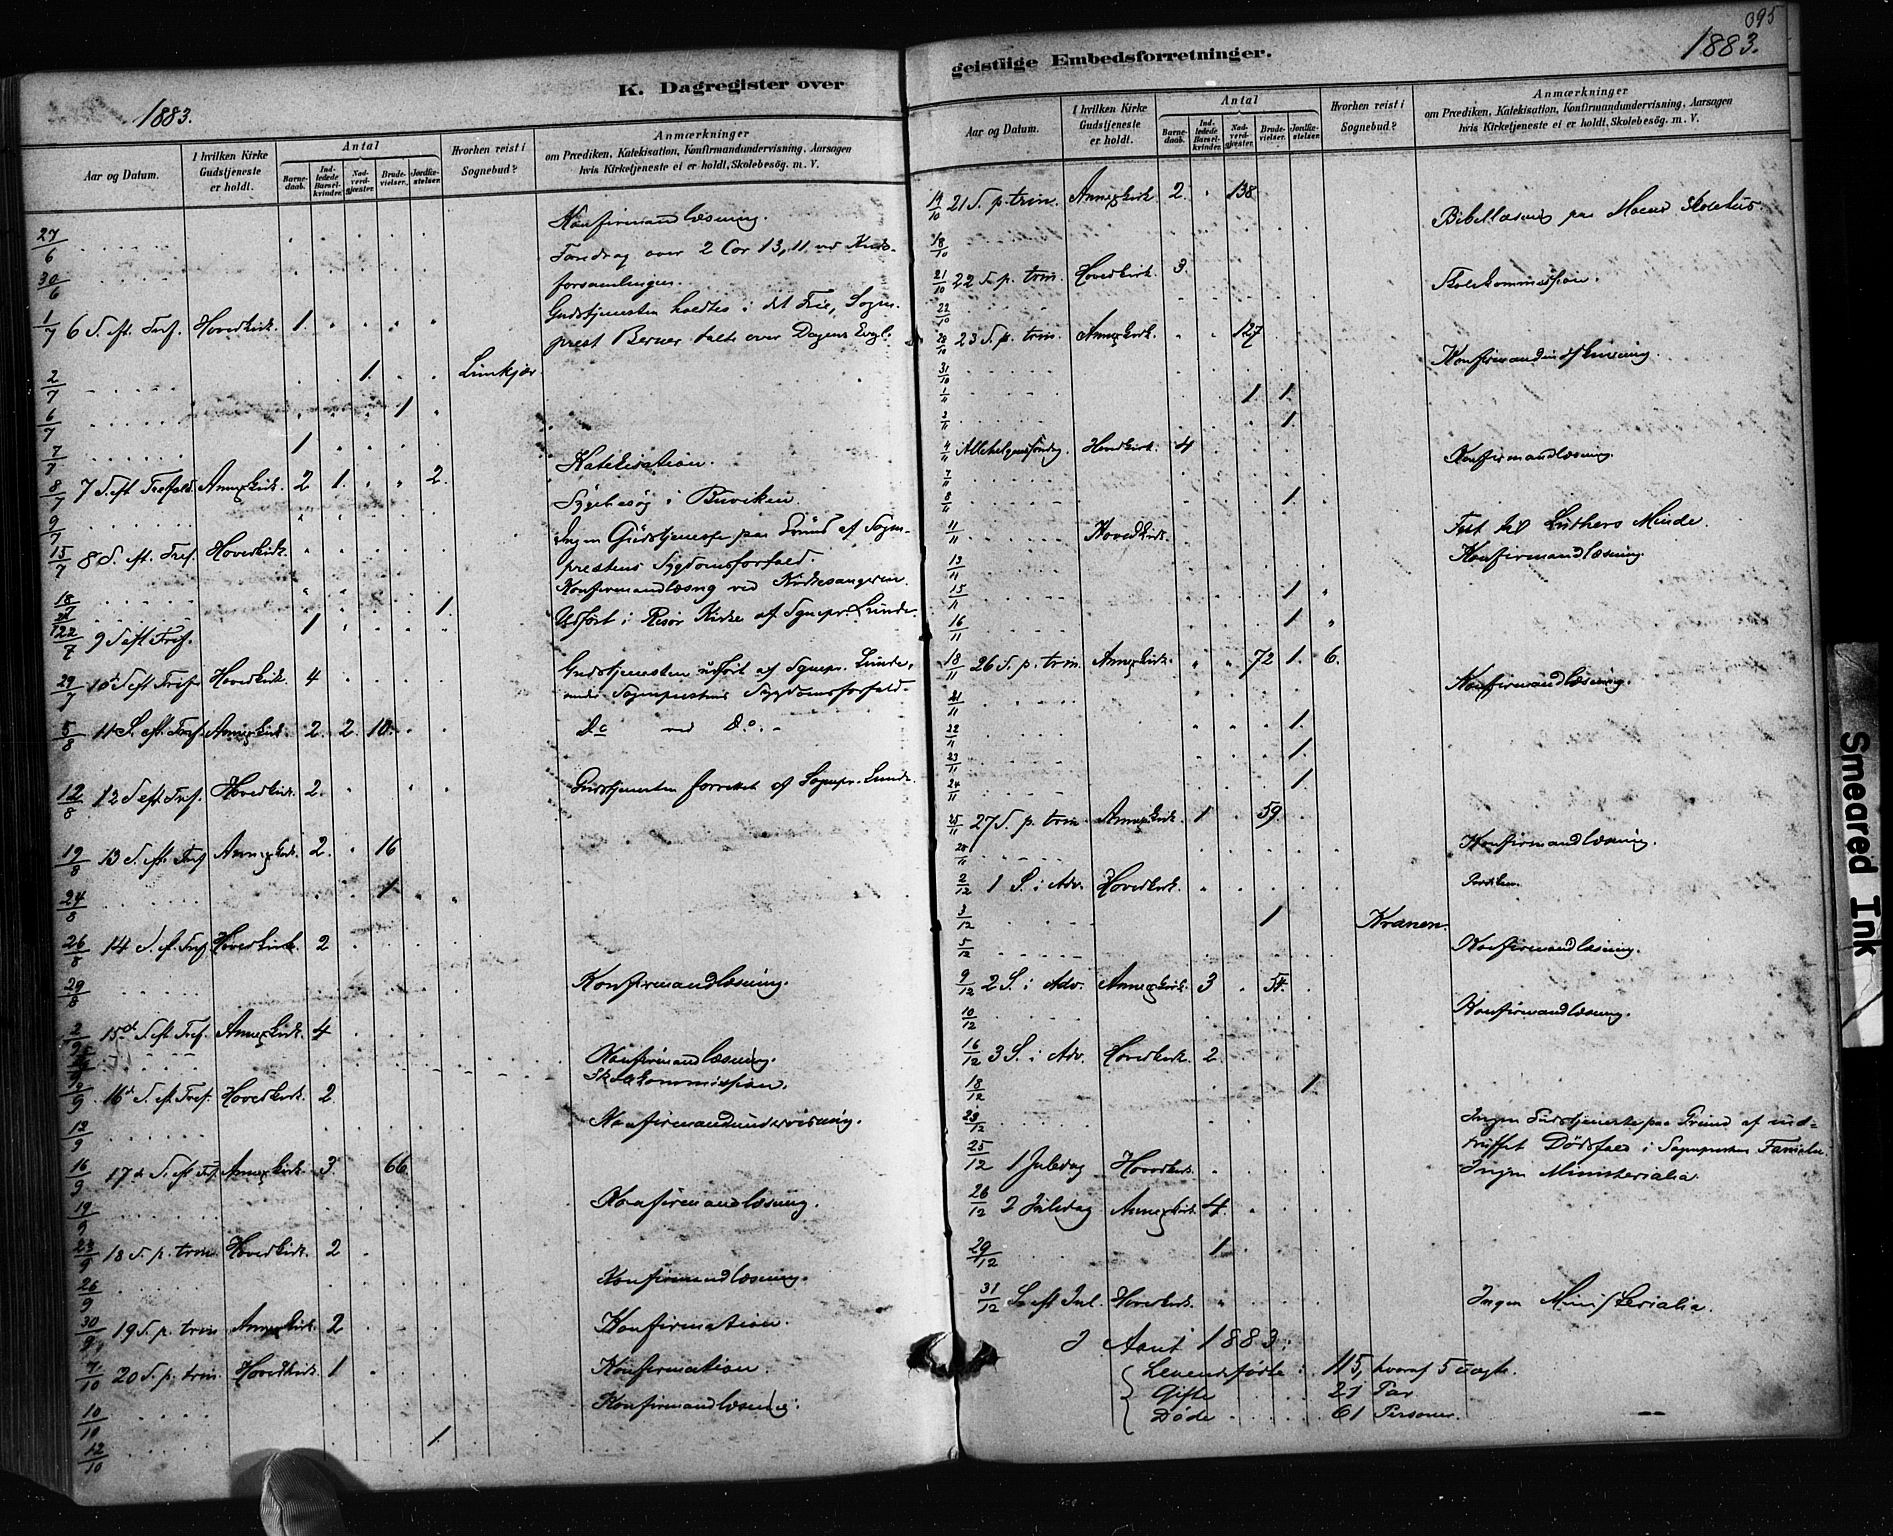 1883.
K. Dagregister over
Aar og Datum.
I hvilken Kirke Gudstjeneste er holdt.
Antal
Barne-daab.
Ind-ledede Barsel-kvinder.
Nad-verd-gjæster.
Brude-vielser.
Jordfæ-stelser.
Hvorhen reist i Sognebud?
Anmærkninger
om Prædiken, Katekisation, Konfirmandundervisning, Aarsagen
hvis Kirketjeneste ei er holdt, Skolebesög. m. V.
27/6 Konfirmandlæsning.
30/6 Foredrag over 2 Cor 13,11 ved
forsamlingen.
1/7 6 S. eft. Tref. Hovedkirk. 1. Gudstjenesten holdtes i det Frie, Sogne-
prest Berner talte over Dagens Evgl.
2/7 1.
6/7 1
7/7 1
8/7 7 S. eft Trefold. Annexkirk. 2 1. 2. Katekisation.
9/7 Sygebesøg i Buviken.
15/7 8 S. eft. Tref. Hovedkirk. Ingen Gudstjeneste paa Grund af Sogne-
prestens Sygdomsforfald.
18/7 Konfirmandlæsng ved Kirkesangeren.
1.
22/7 9 S eft Tref. 1 Udført i Risør Kirke af Sognepr. Lunde
29/7 10 S eft Tref. Hovedkirk. 4 Gudstjenesten udført af Sognepr. Lunde,
under Sogneprestens Sygdomsforfald.
5/8 11 S. eft. Tref. Annexkirk. 2. 2. 10. Do ved Do. -
12/8 12 S eft Tref. Hovedkirk. 2. Gudstjenesten forrettet af Sognepr. Lunde.
19/8 13 S. eft. Tref Annexkirk. 2. 16
24/8 1
26/8 14 S. eft. Tref Hovedkirk 2
29/8 Konfirmandlæsning.
2/9 15de S. eft Tref. Annexkirk. 4
Konfirmandlæsning.
Skolekommission.
9/9 16d S. eft. Tref. Hovedkirk. 2.
12/9 Konfirmandundervisning.
16/9 17de S. eft Tref. Annexkirk. 3. 66
19/9 Konfirmandlæsning.
23/9 18 S. p. trin. Hovedkirk. 2
26/9 Konfirmandlæsning.
30/9 19 S. p. trin Annexkirk. 2 Konfirmation.
7/10 20 S. p. trin. Hovedkirk. 1 Konfirmation
10/10 Konfirmandlæsning.
12/10 1
095
1883.
geistlige Embedsforretninger.
Aar og Datum.
I hvilken Kirke Gudstjeneste er holdt.
Antal
Barne-daab.
Ind-ledede Barsel-kvinder.
Nad-verd-gjæster.
Brude-vielser.
Jordfæ-stelser.
Hvorhen reist i Sognebud?
Anmærkninger
om Prædiken, Katekisation, Konfirmandundervisning, Aarsagen
hvis Kirketjeneste ei er holdt, Skolebesög. m. V.
14/10 21 S. p. trin. Annexkirk. 2. 138
18/10 Bibellæsning paa Moens Skolehus.
21/10 22 S. p. trin. Hovedkirk. 3.
22/10 Skolekommission.
28/10 23 S. p. trin. Annexkirk. 127
31/10
1/11 1 1.
2/11 1.
4/11 Allehelgenssøndag. Hovedkirk. 4
7/11 Konfirmandlæsning.
8/11 1.
11/11 Hovedkirk. Fest til Luthers Minde.
13/11 Konfirmandlæsning.
15/11 1
16/11 1
18/11 26 S. p. trin. Annexkirk. 72 1. 6.
21/11 Konfirmandlæsning.
22/11 1.
23/11 1.
24/11 1
25/11 27 S. p. trin Annexkirk. 1 59.
28/11 Konfirmandlæsning.
2/12 1 S. i Adv. Hovedkirk.
3/12 1 Kranen.
5/12 Konfirmandlæsning.
9/12 2 S. i Adv. Annexkirk. 3 54.
10/12 Konfirmandlæsning.
16/12 3 S. i Adv. Hovedkirk. 2.
18/12 1
23/12 Ingen Gudstjeneste paa Grund af ind-
truffet Dødsfald i Sogneprestens Familie
25/12 1 Juledag Hovedkirk. Ingen Ministerialia.
26/12 2 Juledag Annexkirk. 4.
29/12 1
31/12 S. eft Jul. Hovedkirk. Ingen Ministerialia.
I Aaret 1883:
Levendefødte: 115, hvoraf 5 uægte.
Gifte 27 Par
Døde 61 Personer.
Smeared Ink